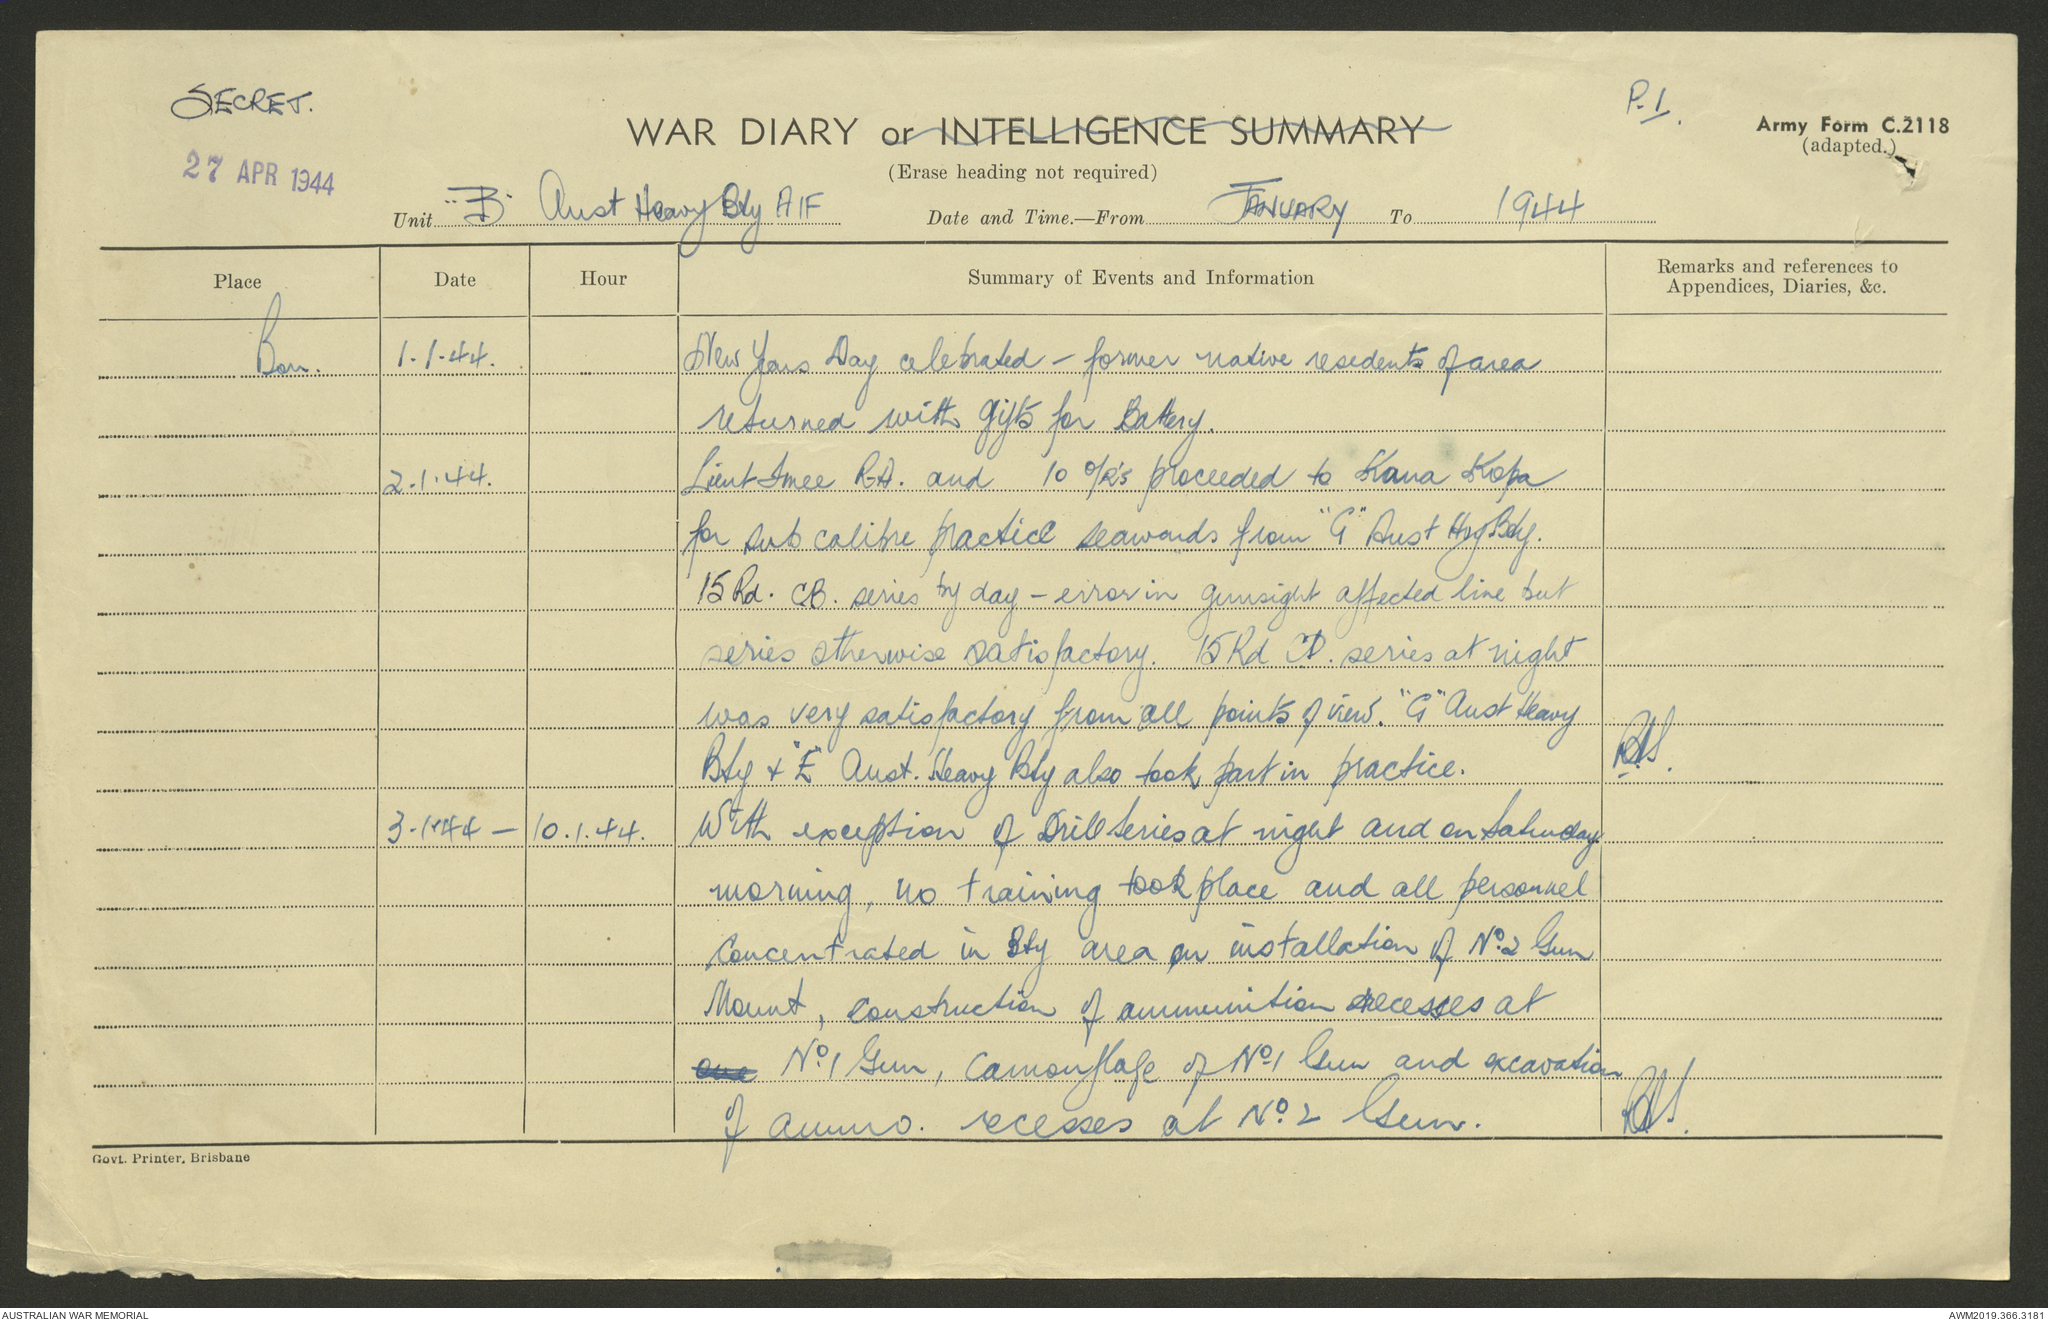 SECRET.
P.1.
WAR DIARY or INTELLIGENCE SUMMARY
Army Form C.2118
(adapted.)
27 APR 1944
(Erase heading not required)
Unit "B" Aust Heavy Bty AIF Date and Time.—From JANUARY To 1944
Place Date Hour Summary of Events and Information Remarks and references to
Appendices, Diaries, &c.
1.1.44. New Years Day celebrated - former native residents of area
returned with gifts for Battery.
2.1.44. Lieut R.A. and 10 O/R's proceeded to Kana Kopa
for sub calibre practice seawards from "G" Aust Hvy Bty.
15 Rd. C.B. series by day - error in gunsight affected line but
series otherwise satisfactory. 15 Rd series at night
was very satisfactory from all points of view. "G" Aust Heavy
Bty & "E" Aust. Heavy Bty also took part in practice.
3.1.44 - 10.1.44. With exception of Drill Series at night and on Saturday
morning, no training took place and all personnel
concentrated in Bty area on installation of No.2 Gun
Mount, construction of ammunition recesses at
one No.1 Gun, camouflage of No.1 Gun and excavation
of ammo. recesses at No.2 Gun.
Govt. Printer, Brisbane
AUSTRALIAN WAR MEMORIAL
AWM2019.366.3181